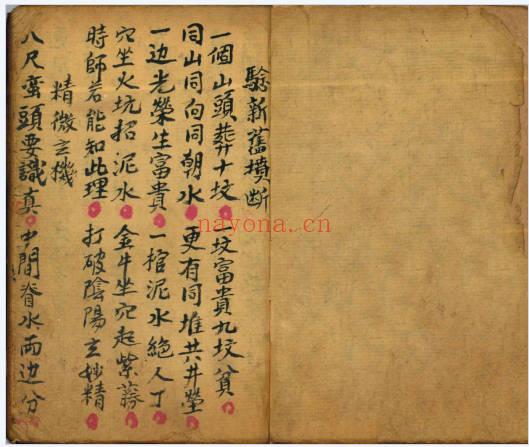 驗新舊墳断
一個山頭葬十坟一坟富貴九坟貧
同山同向同朝水更有同堆共井塋
一边光榮生富貴一棺泥水絶人丁
穴坐火坑招泥水金牛坐穴起紫藤
時師若能知此理打破陰陽玄妙精
精微玄機
八尺蛮頭要識真中間脊水兩边分
nayona.cn